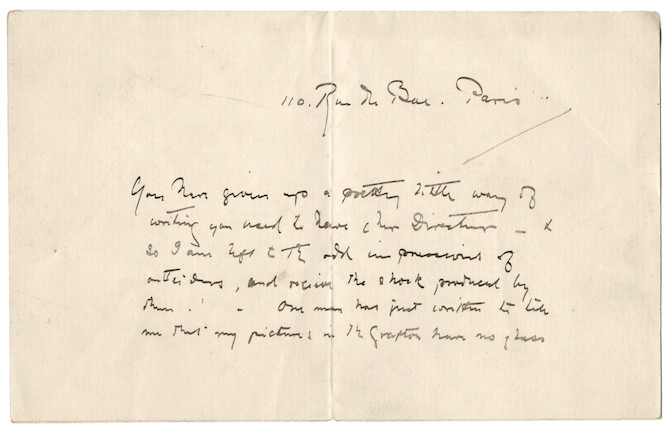 110. Rue du Bac. Paris
You have given up a pretty little way of
writing you used to have cher Directeur — &
so I am left to the odd impressions of
outsiders, and receive the shock produced by
them! — One man has just written to tell
me that my pictures in the Grafton have no glass